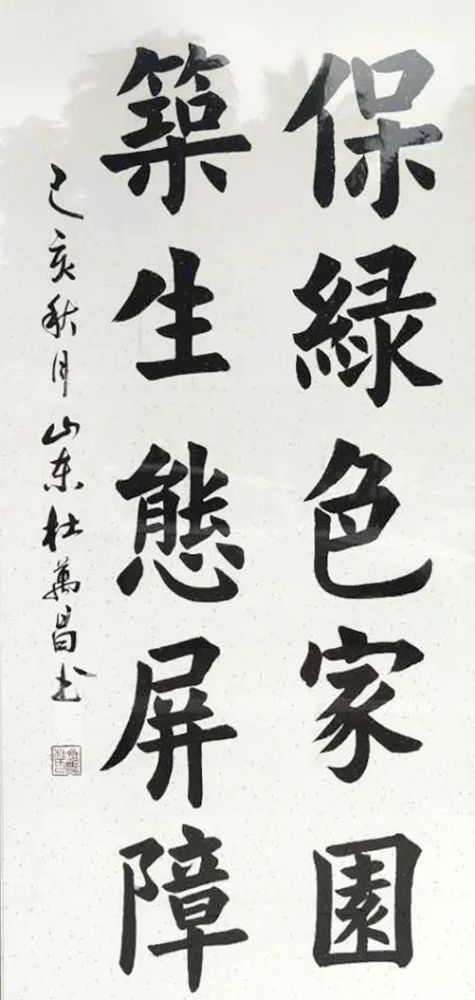 保綠色家園
築生態屏障
己亥秋月山东杜萬昌书